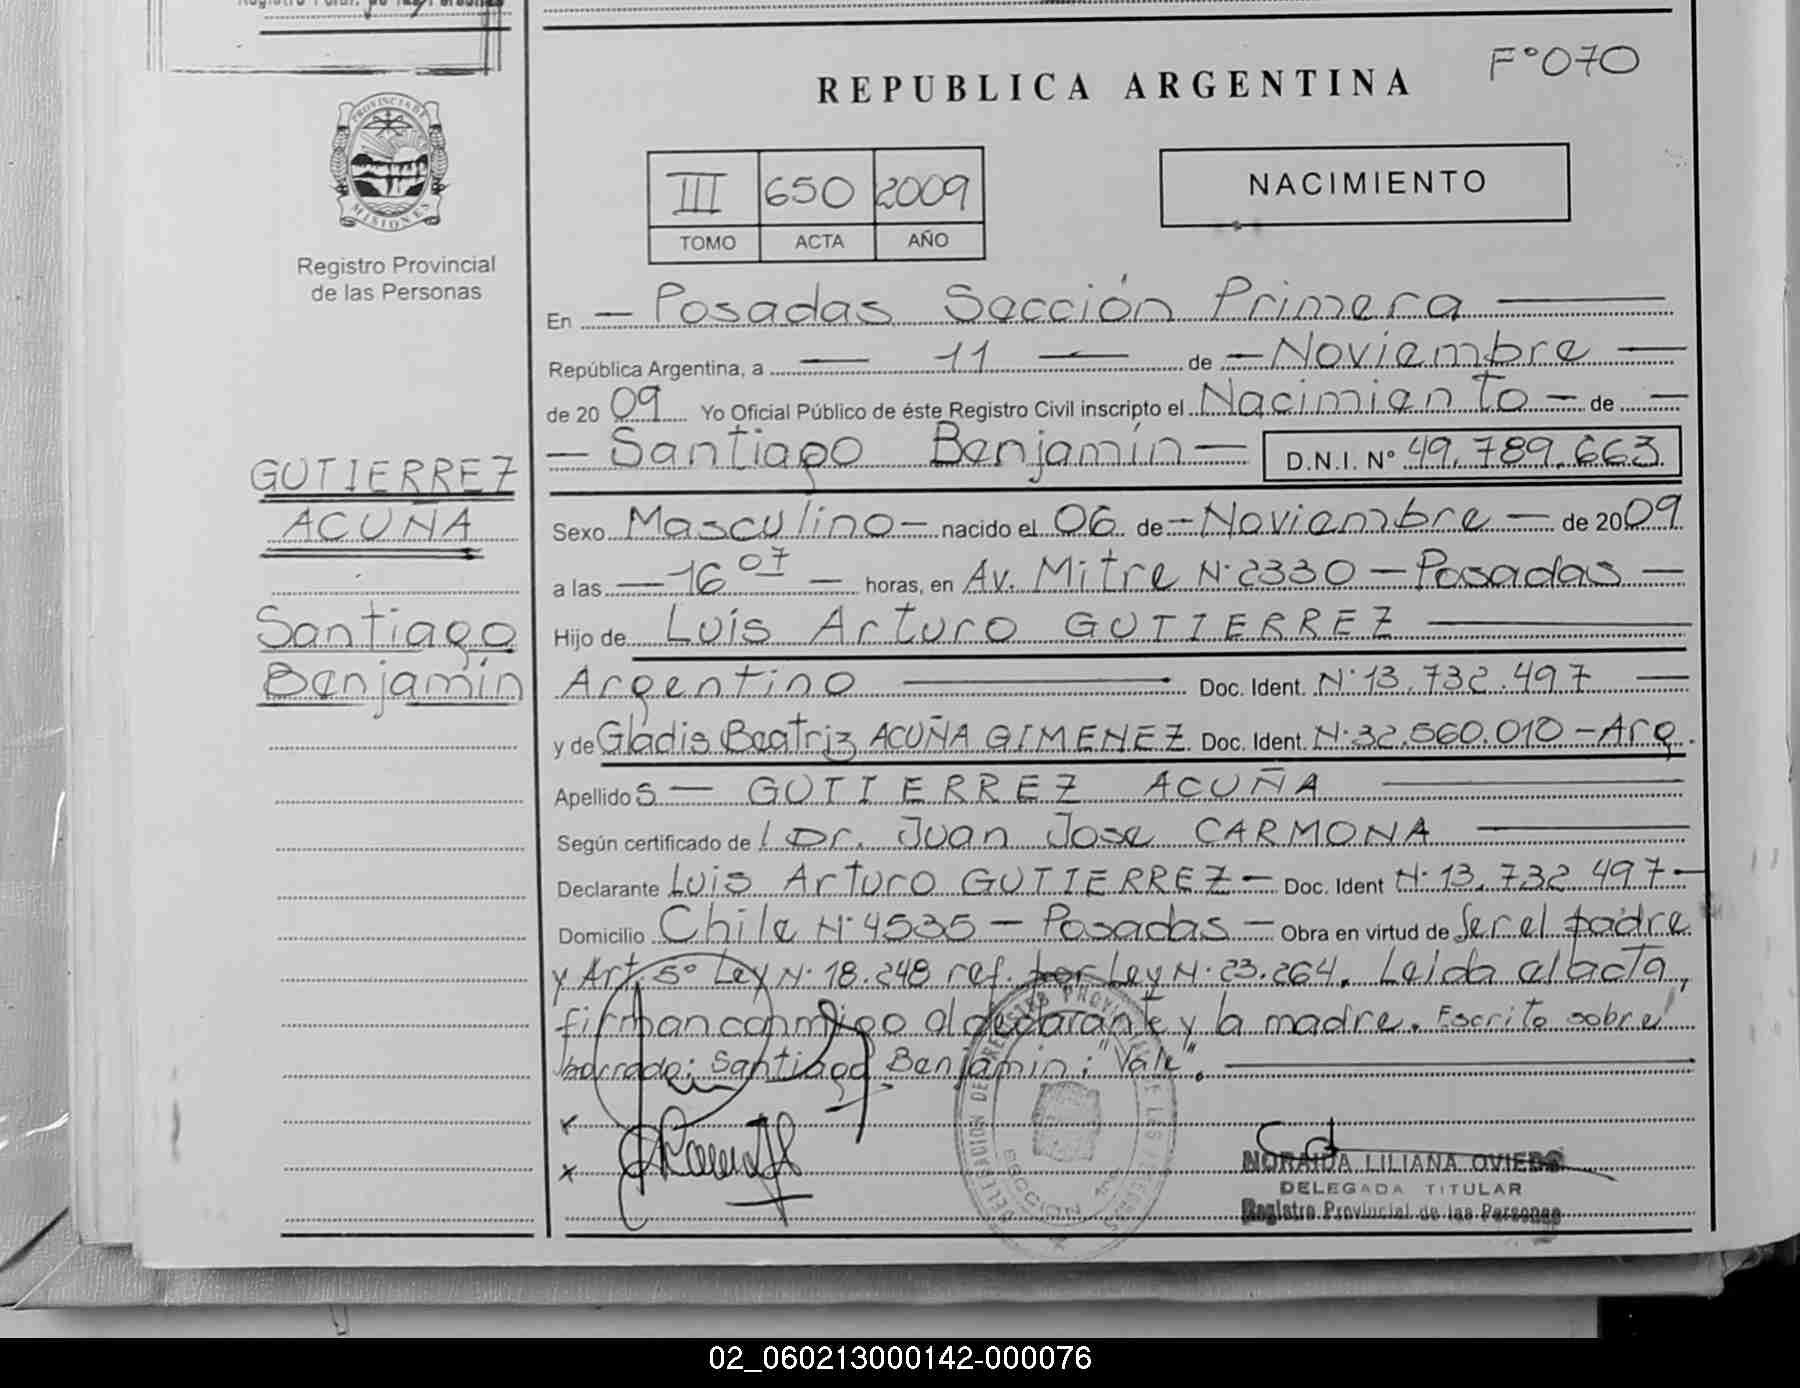 F°070
REPUBLICA ARGENTINA
PROVINCIA DE
MISIONES
Registro Provincial
de las Personas
III 650 2009
TOMO ACTA AÑO
NACIMIENTO
En — Posadas Sección Primera —
República Argentina, a — 11 — de — Noviembre —
de 20 09 Yo Oficial Público de éste Registro Civil inscripto el Nacimiento — de —
— Santiago Benjamín — D.N.I. N° 49.789.663
GUTIERREZ
ACUÑA
Santiago
Benjamín
Sexo Masculino — nacido el 06 de — Noviembre — de 2009
a las — 16 07 — horas, en Av. Mitre N° 2330 — Posadas —
Hijo de Luis Arturo GUTIERREZ —
Argentino — Doc. Ident. N° 13.732.497 —
y de Gladis Beatriz ACUÑA GIMENEZ Doc. Ident. N° 32.560.010 — Arg.
Apellidos — GUTIERREZ ACUÑA —
Según certificado de l Dr. Juan Jose CARMONA —
Declarante Luis Arturo GUTIERREZ — Doc. Ident N° 13.732.497 —
Domicilio Chile N° 4535 — Posadas — Obra en virtud de Ser el padre
y Art. 5° Ley N° 18.248 ref. por Ley N° 23.264. Leida el acta,
firman conmigo el declarante y la madre. Escrito sobre
borrado: Santiago Benjamín: "Vale". —
NORAIDA LILIANA OVIEDO
DELEGADA TITULAR
Registro Provincial de las Personas
02_060213000142-000076